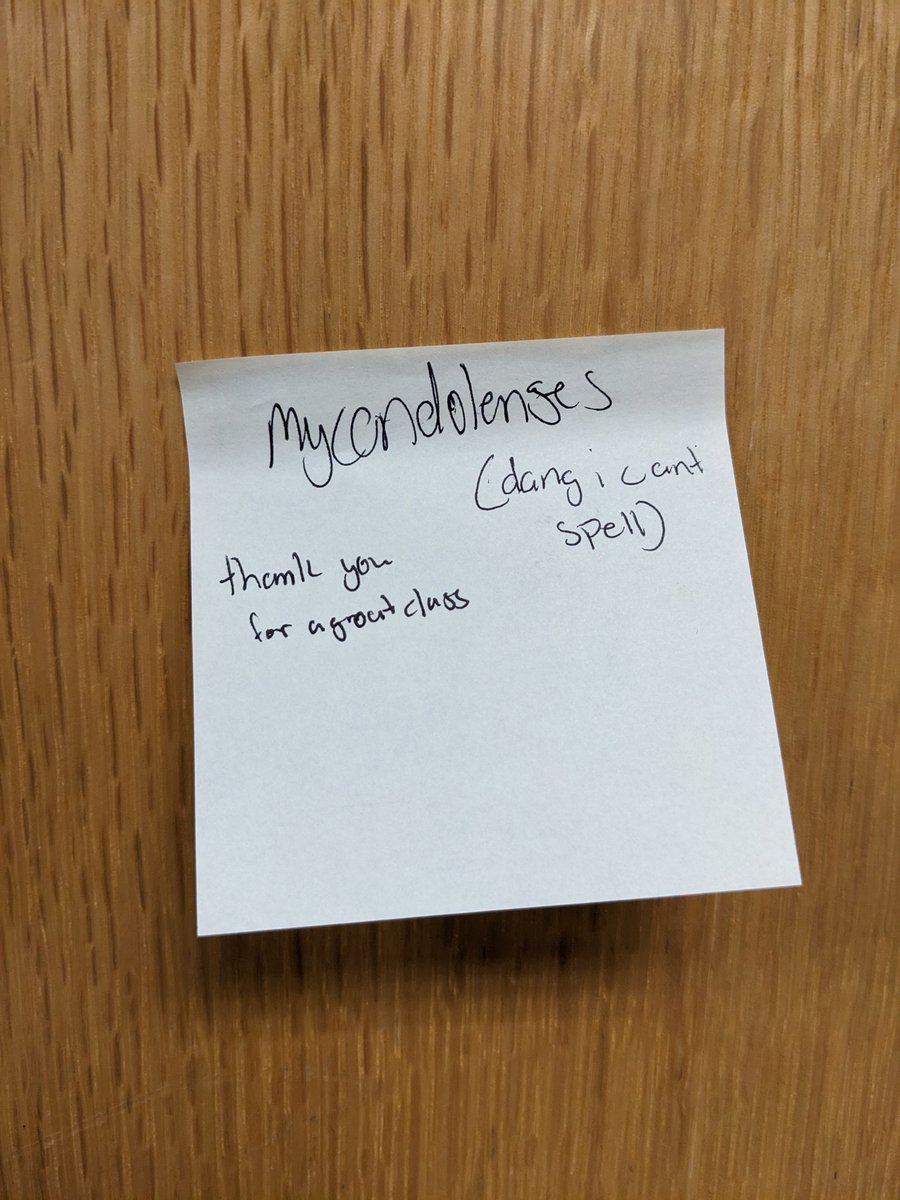 My condolenses
(dang i cant
spell)
thank you
for a great class